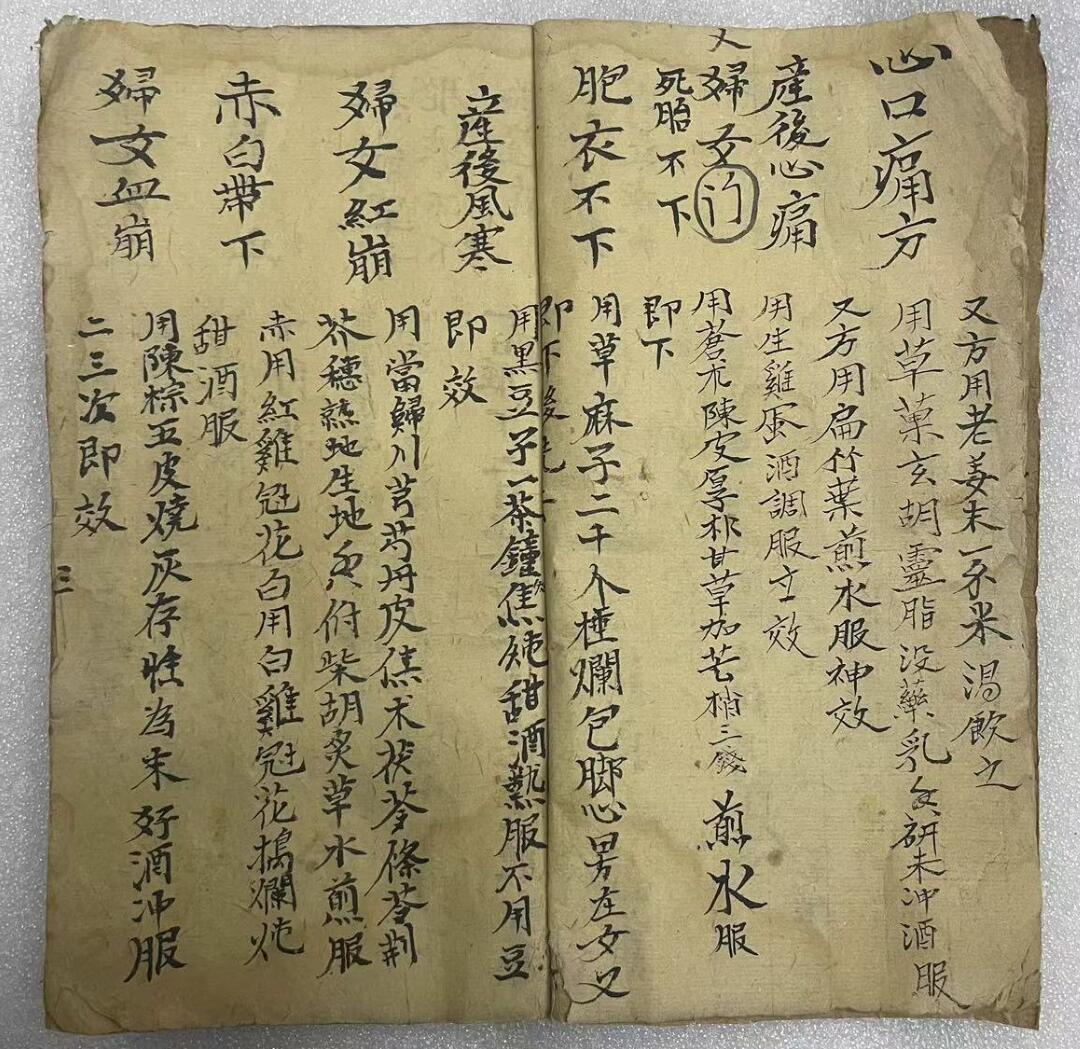 又方用老姜末一不米湯飲之
心口痛方
用草菓玄胡靈脂没藥乳香研末冲酒服
又方用扁竹葉煎水服神效
產後心痛
用生雞蛋酒調服立效
又婦女门
死胎不下
用蒼朮陳皮厚朴甘草加芒梢三錢煎水服
即下
胞衣不下
用草麻子二千个棰爛包脚心男左女又
即下後
產後風寒
用黑豆子一茶鐘焦炖甜酒熱服不用豆
即效
婦女紅崩
用當歸川芎芍丹皮焦术茯苓條芩荆
芥穗熟地生地香付柴胡炙草水煎服
赤白帶下
赤用紅雞冠花白用白雞冠花搗爛炖
甜酒服
婦女血崩
用陳棕五皮燒灰存性為末好酒冲服
二三次即效
三